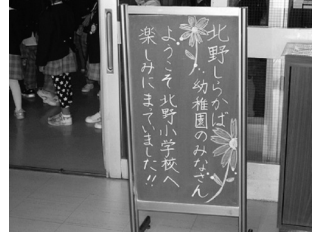 北野しらかば
幼稚園のみなさん
ようこそ北野小学校へ
楽しみにまっていました!!